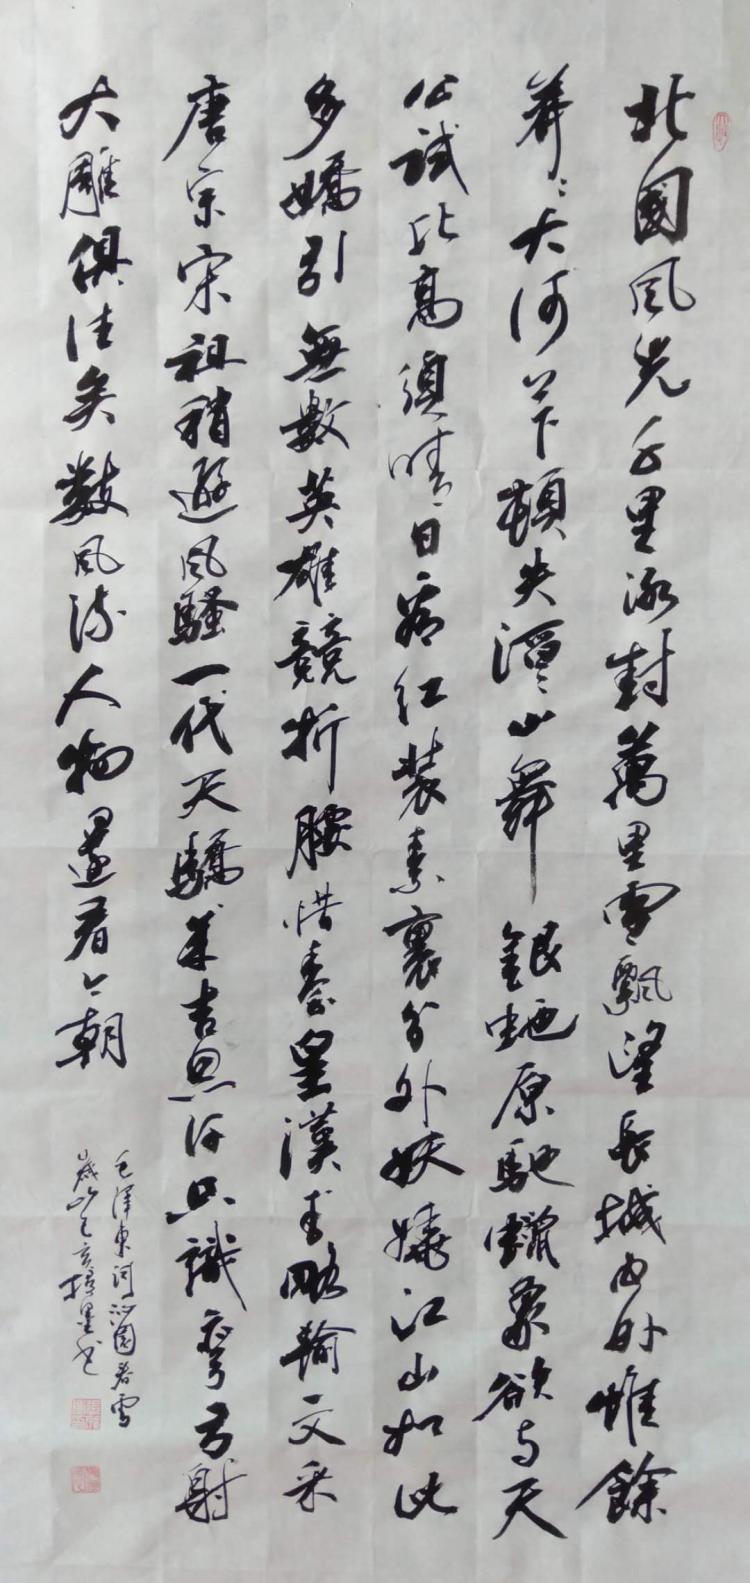 北國風光千里冰封萬里雪飄望長城內外惟餘
莽〻大河上下頓失滔〻山舞銀蛇原馳蠟象欲与天
公試比高須晴日看紅裝素裹分外妖嬈江山如此
多嬌引無數英雄競折腰惜秦皇漢武略輸文采
唐宗宋祖稍遜風騷一代天驕成吉思汗只識彎弓射
大雕俱往矣數風流人物還看今朝
毛澤東詞沁園春雪
歲次己亥墨书